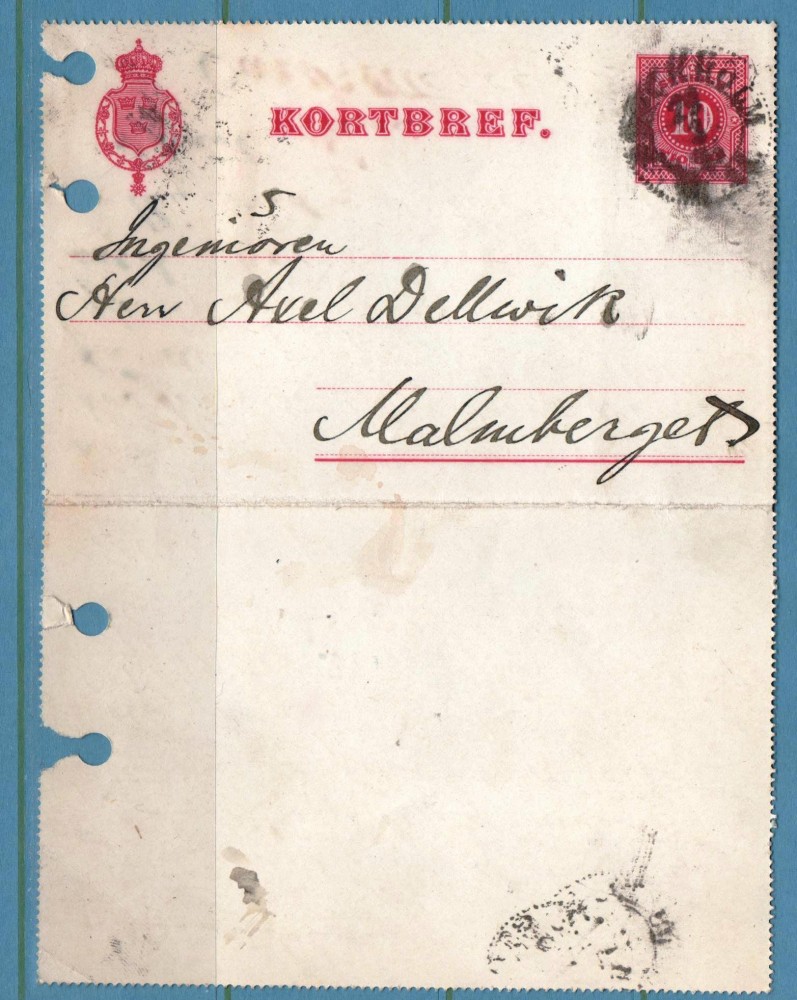 KORTBREF.
10
5
Ingeniören
Herr Axel Dellwik
Malmberget